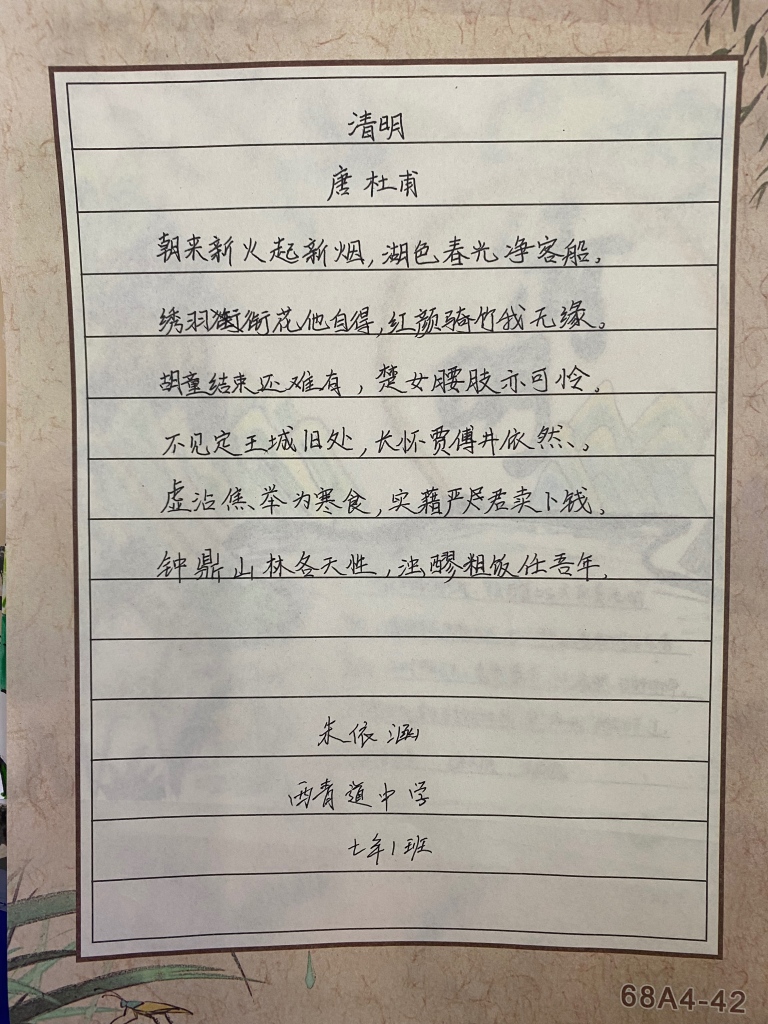 清明
唐 杜甫
朝来新火起新烟,湖色春光净客船。
绣羽衔花他自得,红颜骑竹我无缘。
胡童结束还难有,楚女腰肢亦可怜。
不见定王城旧处,长怀贾傅井依然、。
虚沾焦举为寒食,实藉严君卖卜钱。
钟鼎山林各天性,浊醪粗饭任吾年。
朱依涵
西青道中学
七年1班
68A4-42